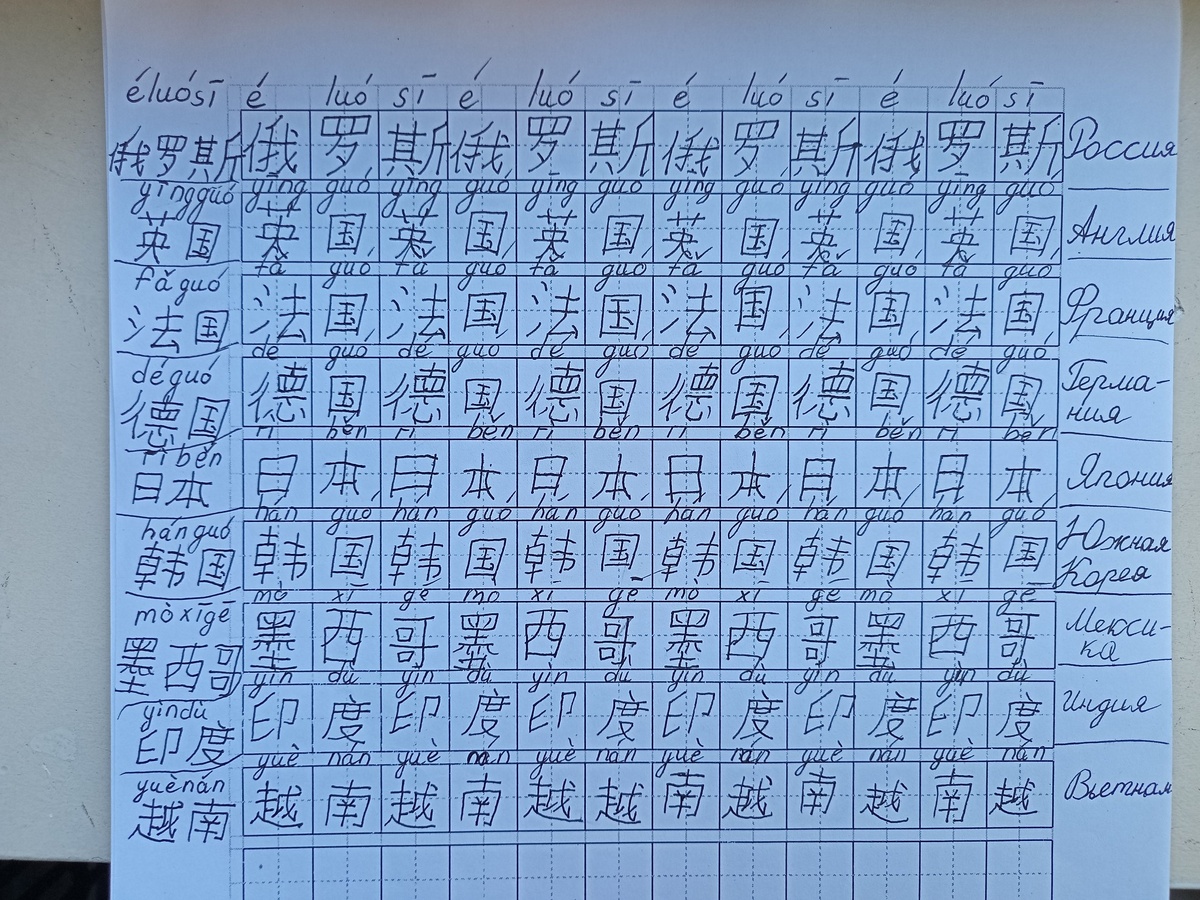 éluósī é luó sī é luó sī é luó sī é luó sī
俄罗斯 俄 罗 斯 俄 罗 斯 俄 罗 斯 俄 罗 斯 Россия
yīngguó yīng guó yīng guó yīng guó yīng guó yīng guó yīng guó
英国 英 国 英 国 英 国 英 国 英 国 英 国 Англия
fǎguó fǎ guó fǎ guó fǎ guó fǎ guó fǎ guó fǎ guó
法国 法 国 法 国 法 国 法 国 法 国 法 国 Франция
déguó dé guó dé guó dé guó dé guó dé guó dé guó
德国 德 国 德 国 德 国 德 国 德 国 德 国 Герма-
ния
rì běn rì běn rì běn rì běn rì běn rì běn rì běn
日本 日 本 日 本 日 本 日 本 日 本 日 本 Япония
hánguó hán guó hán guó hán guó hán guó hán guó hán guó
韩国 韩 国 韩 国 韩 国 韩 国 韩 国 韩 国 Южная
Корея
mòxīgē mò xī gē mò xī gē mò xī gē mò xī gē
墨西哥 墨 西 哥 墨 西 哥 墨 西 哥 墨 西 哥 Мекси-
ка
yìndù yìn dù yìn dù yìn dù yìn dù yìn dù yìn dù
印度 印 度 印 度 印 度 印 度 印 度 印 度 Индия
yuènán yuè nán yuè nán yuè nán yuè nán yuè nán yuè nán
越南 越 南 越 南 越 越 南 越 南 越 南 越 Вьетнам